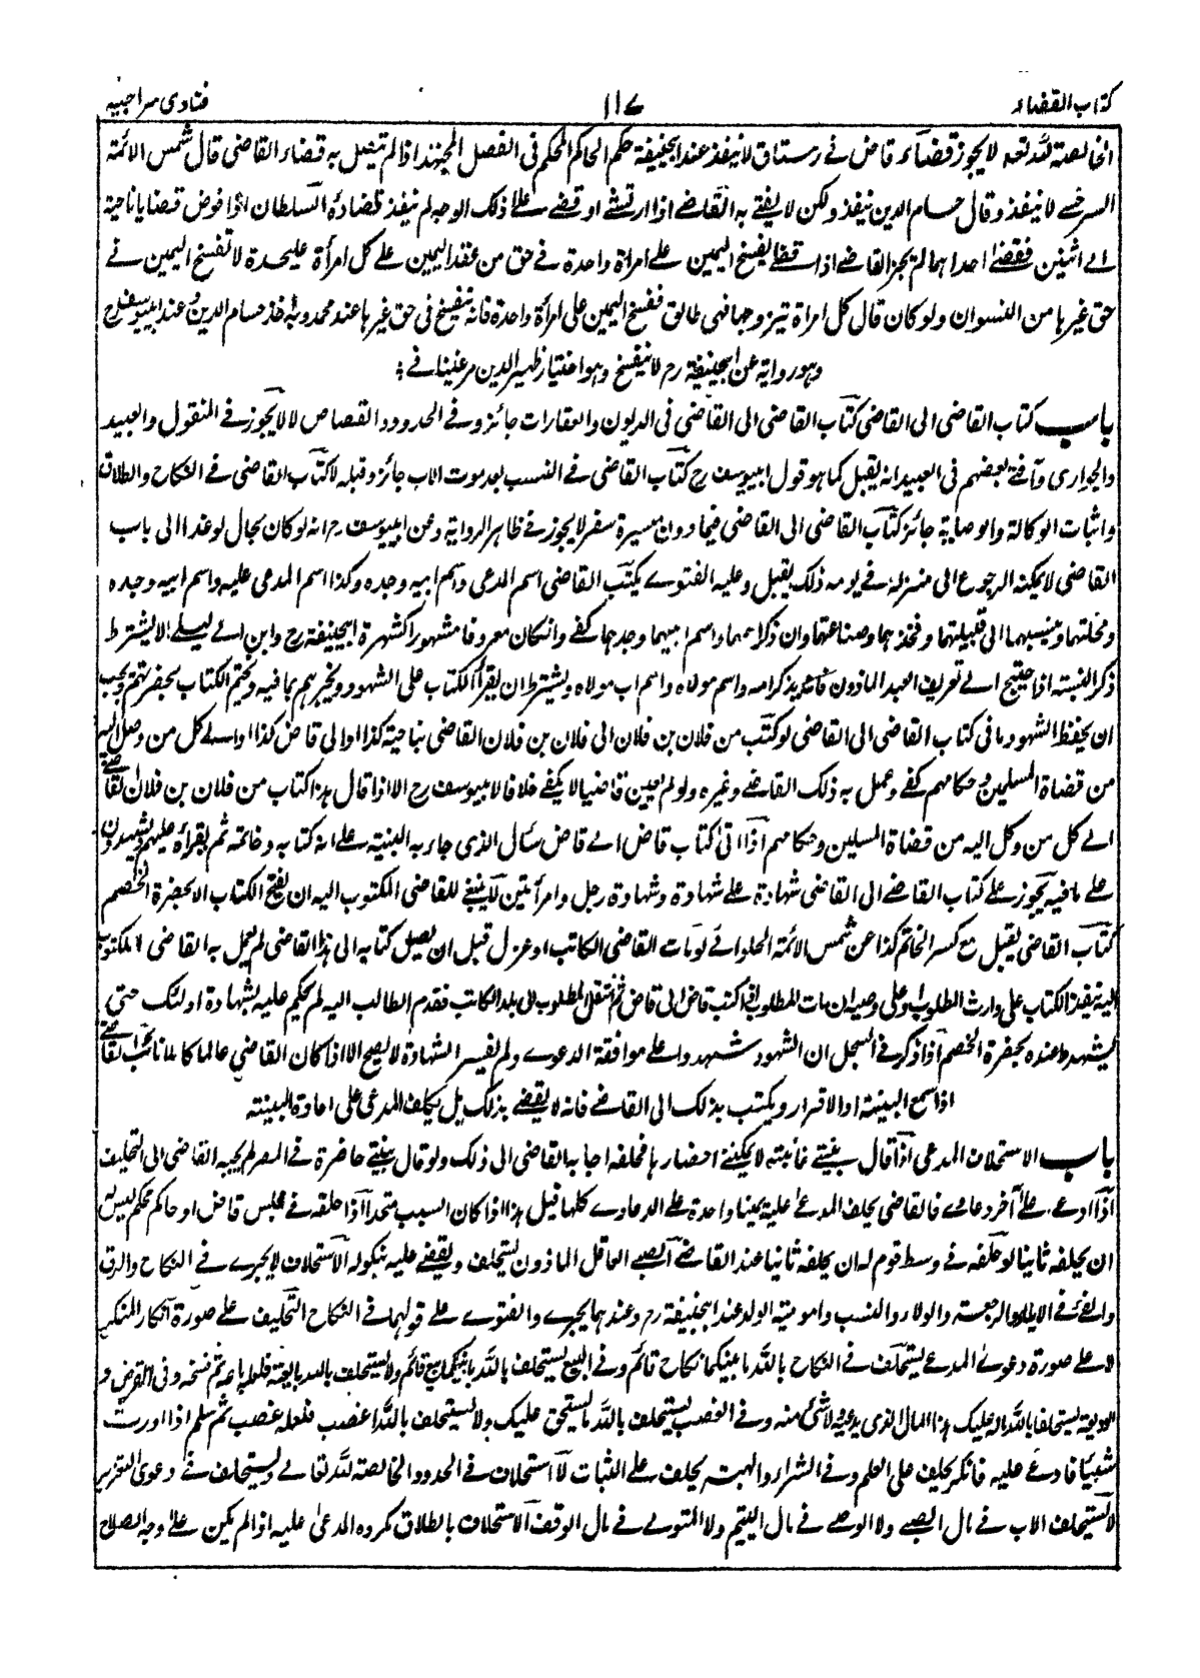 كتاب القضاء ١١٧ فتاوى سراجيه
الخالصة لله تعالى لا يجوز قضاء قاض فى رستاق لا ينفذ عند ابيحنيفة حكم الحاكم المحكم فى الفصل المجتهد اذا لم تيصل به قضاء القاضى قال شمس الائمة
السرخسى لا ينفذ وقال حسام الدين ينفذ ولكن لا يفتى به القاضى اذا ارتشى او قضى على ذلك الوجه لم ينفذ قضاؤه السلطان اذا فوض قضايا ناحية
الى اثنين فقضى احدهما لم يجز القاضى اذا قضى بفسخ اليمين على امراة واحدة فى حق من عقد اليمين على كل امرأة عليحدة لا تفسخ اليمين فى
حق غيرها من النسوان ولو كان قال كل امراة تيزوجها فهى طالق ففسخ اليمين على امرأة واحدة فانه تنفسخ فى حق غيرها عند محمد وبه اخذ حسام الدين وعند ابيوسف رح
وهو رواية عن ابيحنيفة رح لا تنفسخ وهو اختيار ظهير الدين مرغينانى
باب كتاب القاضى الى القاضى كتاب القاضى الى القاضى فى الديون والعقارات جائز وفى الحدود والقصاص لا لا يجوز فى المنقول والعبيد
والجوارى وافتى بعضهم فى العبيد انه يقبل كما هو قول ابيوسف رح كتاب القاضى فى النسب بعد موت الاب جائز وقبله لا كتاب القاضى فى النكاح والطلاق
واثبات الوكالة والوصاية جائز كتاب القاضى الى القاضى فيما دون مسيرة سفر لا يجوز فى ظاهر الرواية وعن ابيوسف رح انه لو كان بحال لو غدا الى باب
القاضى لا يمكنه الرجوع الى منزله فى يومه ذلك يقبل وعليه الفتوى يكتب القاضى اسم المدعى واسم ابيه وجده وكذا اسم المدعى عليه واسم ابيه وجده
ومحلتهما وينسبهما الى قبيلتهما وفخذهما وصناعتهما وان ذكر اسمهما واسم ابيهما وجدهما كفى وان كان معروفا مشهورا كشهرة ابيحنيفة رح وابن ابى ليلى لا يشترط
ذكر النسبة اذا احتيج الى تعريف العبد الماذون فانه يذكر اسمه واسم مولاه واسم اب مولاه ويشترط ان يقرأ الكتاب على الشهود ويخبرهم بما فيه ويختم الكتاب بحضرتهم ويجب
ان يحفظ الشهود ما فى كتاب القاضى الى القاضى لو كتب من فلان بن فلان الى فلان بن فلان القاضى بناحية كذا او الى قاض كذا او الى كل من وصل اليه
من قضاة المسلمين وحكامهم كفى وعمل به ذلك القاضى وغيره ولو لم يعين قاضيا لا يكفى خلافا لابيوسف رح الا اذا قال هذا كتاب من فلان بن فلان القاضى
الى كل من وكل اليه من قضاة المسلمين وحكامهم اذا اتى كتاب قاض الى قاض سأل الذى جاء به البينة على انه كتابه وخاتمه ثم يقرأه عليهم ويشهدون
على ما فيه يجوز على كتاب القاضى الى القاضى شهادة على شهادة وشهادة رجل وامرأتين لا ينبغى للقاضى المكتوب اليه ان يفتح الكتاب الا بحضرة الخصم
كتاب القاضى يقبل مع كسر الخاتم كذا عن شمس الائمة الحلوائى لو مات القاضى الكاتب او عزل قبل ان يصل كتابه الى هذا القاضى لم يعمل به القاضى المكتوب
اليه تنفيذ الكتاب على وارث المطلوب وعلى وصيه ان مات المطلوب اذا كتب قاض الى قاض ثم انتقل المطلوب الى بلد الكاتب فقدم الطالب اليه لم يحكم عليه بشهادة اولئك حتى
يشهدوا عنده بحضرة الخصم اذا ذكر فى السجل ان الشهود شهدوا على موافقة الدعوى ولم يفسر الشهادة لا يصح الا اذا كان القاضى عالما كاملا نائب القاضى
اذا سمع البينة او الاقرار ويكتب بذلك الى القاضى فانه لا يقضى بذلك بل يكلف المدعى على اعادة البينة
باب الاستحلاف المدعى اذا قال بينتى غائبة لا يمكننى احضارها فحلفه اجابه القاضى الى ذلك ولو قال بينتى حاضرة فى المصر لم يجبه القاضى الى التحليف
اذا ادعى على آخر دعاوى فالقاضى يحلف المدعى عليه يمينا واحدة على الدعاوى كلها قيل هذا اذا كان السبب متحدا اذا حلفه فى مجلس قاض او حاكم محكم ليس له
ان يحلفه ثانيا لو حلفه فى وسط قوم له ان يحلفه ثانيا عند القاضى الصبى العاقل الماذون يستحلف ويقضى عليه بنكوله الاستحلاف لا يجرى فى النكاح والرق
والفئ فى الايلاء والرجعة والولاء والنسب وامومية الولد عند ابيحنيفة رح وعندهما يجرى والفتوى على قولهما فى النكاح التحليف على صورة انكار المنكر
لا على صورة دعوى المدعى يستحلف فى النكاح بالله ما بينكما نكاح قائم وفى البيع يستحلف بالله ما بينكما بيع قائم ولا يستحلف بالله ما بعته فلعله باعه ثم فسخه وفى القرض و
الوديعة يستحلف بالله ماله عليك هذا المال الذى يدعيه ولا شئ منه وفى الغصب يستحلف بالله ما يستحق عليك ولا يستحلف بالله ما غصب فلعله غصب ثم سلم اذا اورث
شيئا فادعى عليه فانكر يحلف على العلم وفى الشراء والهبة يحلف على الثبات لا استحلاف فى الحدود الخالصة لله تعالى ويستحلف فى دعوى التعزير
لا يستحلف الاب فى مال الصبى ولا الوصى فى مال اليتيم ولا المتولى فى مال الوقف الاستحلاف بالطلاق مكروه المدعى عليه اذا لم يكن على وجه الصلاح